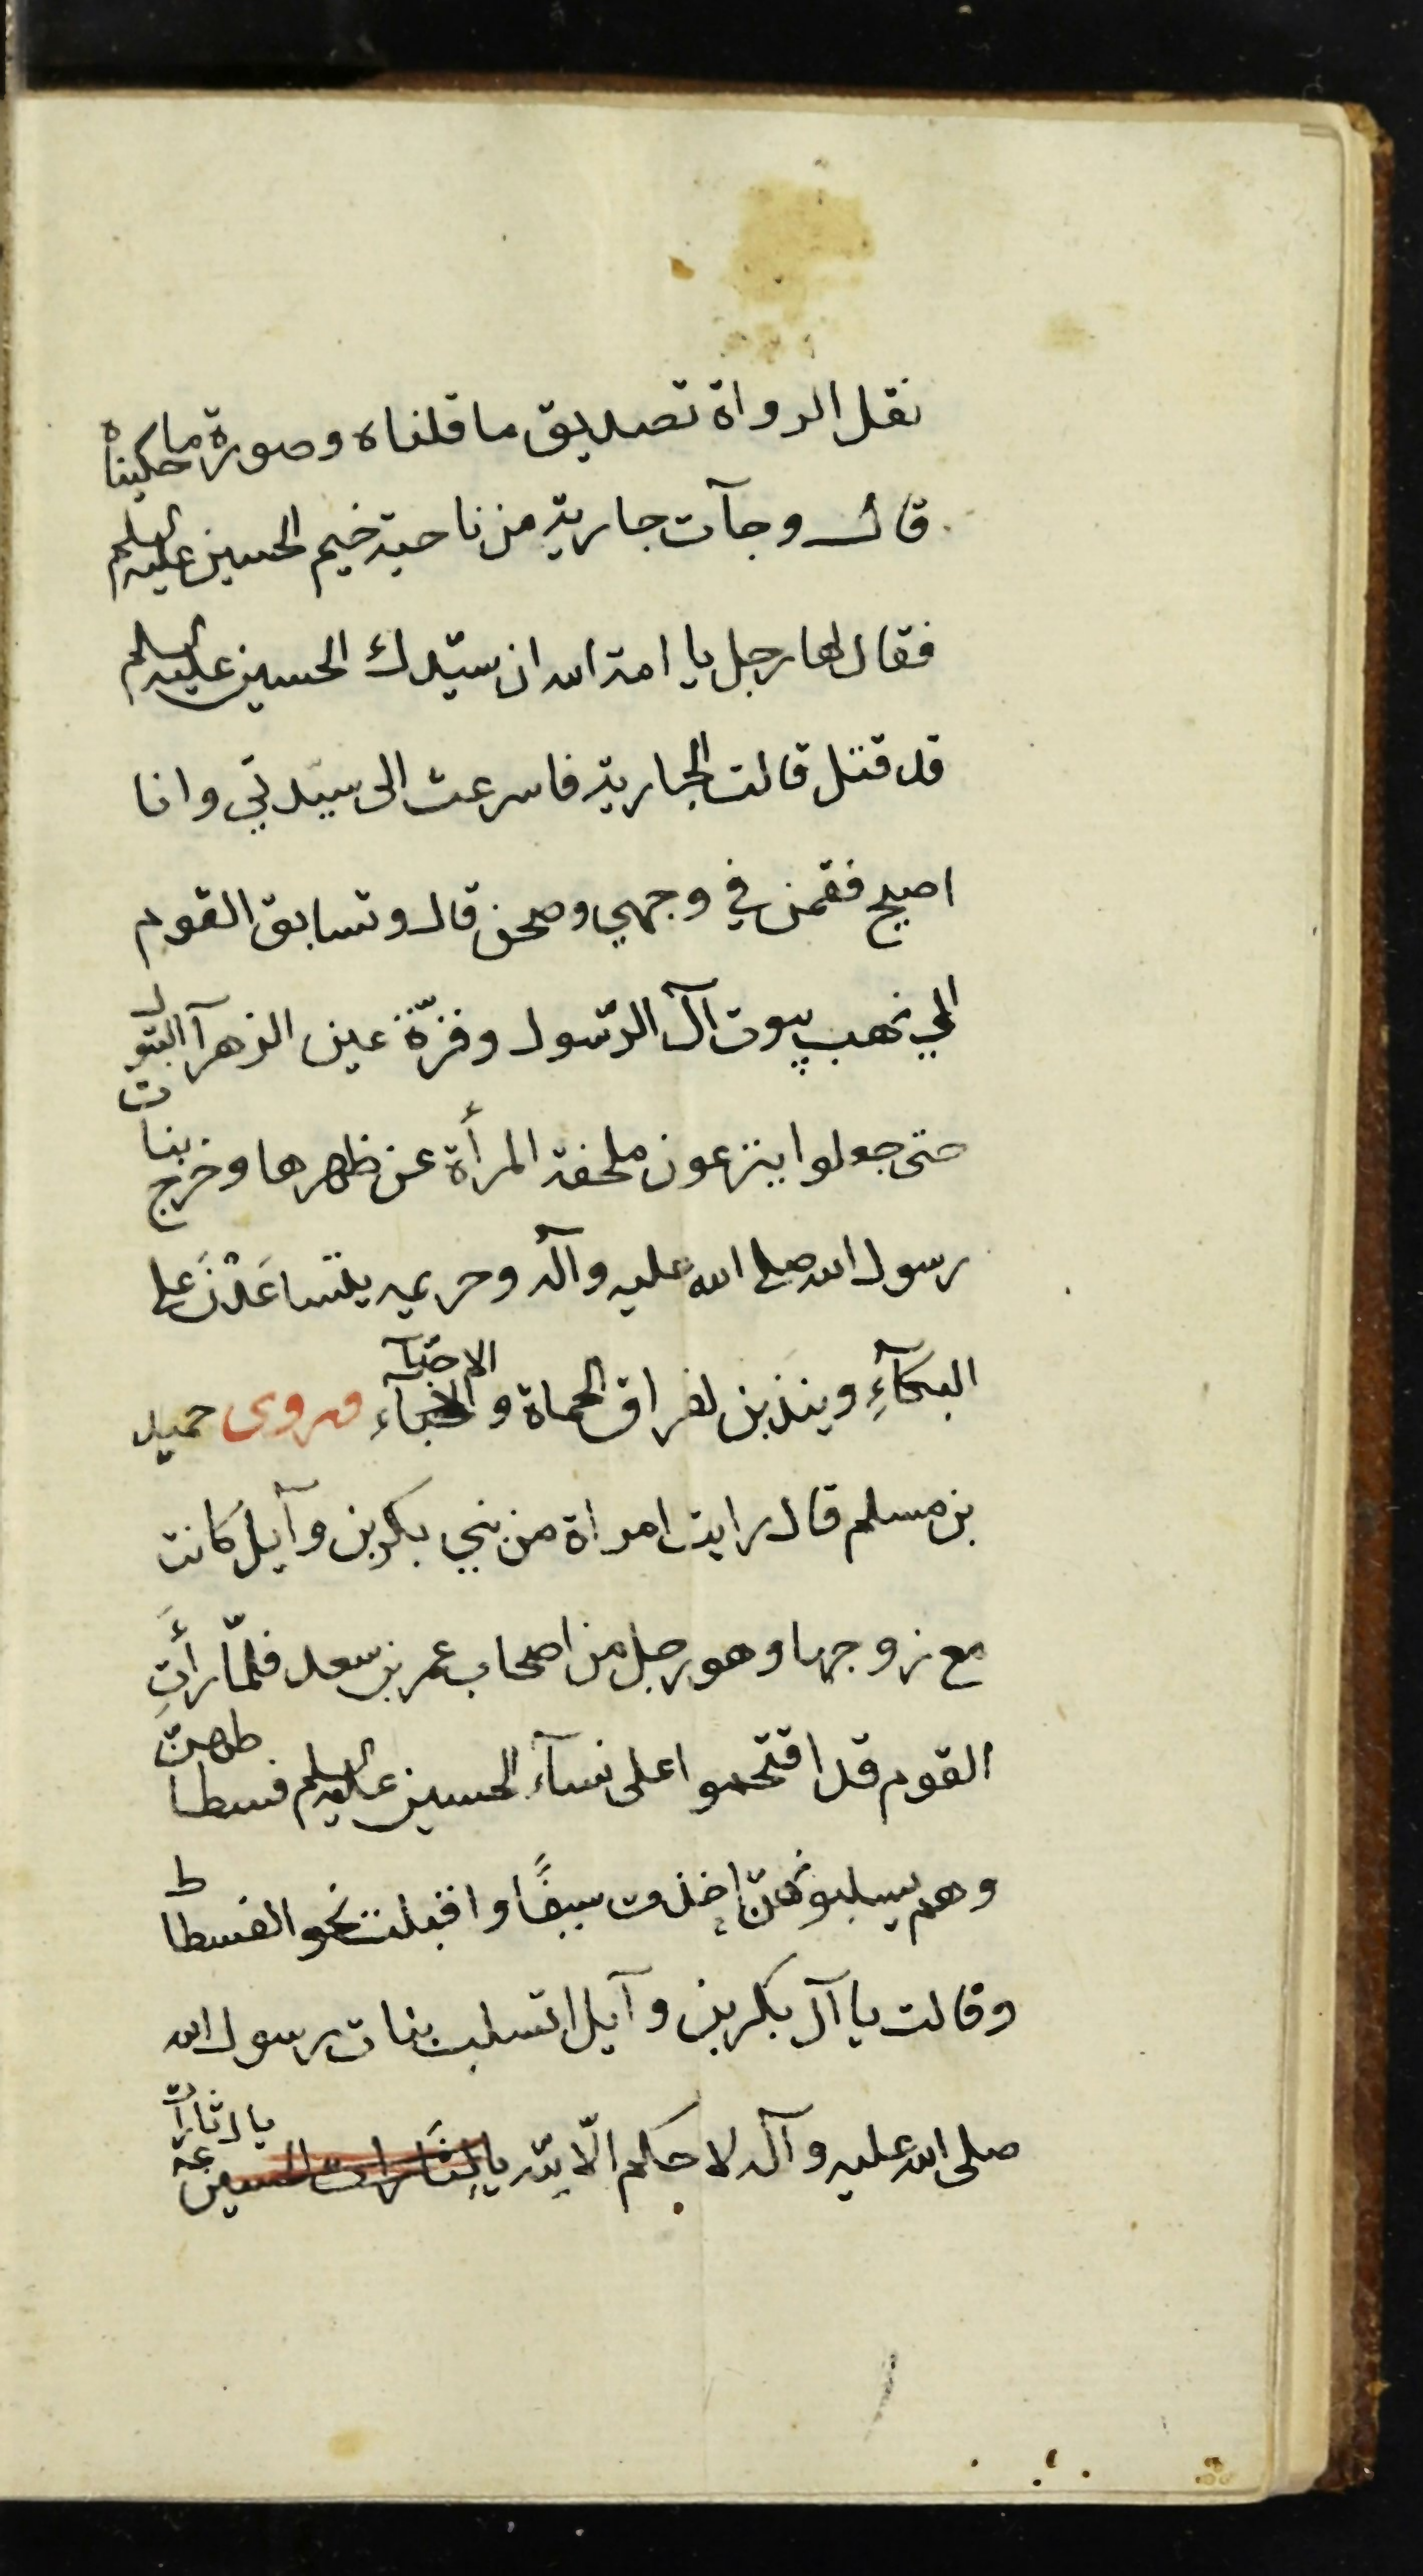 نقل الرواة تصديق ما قلناه وصورة ما حكيناه
قال وجآت جارية من ناحية خيم الحسين عليه السلم
فقال لها رجل يا امة الله ان سيّدك الحسين عليه السلم
قد قتل قالت الجارية فاسرعت الى سيّدتي وانا
اصيح فقمن في وجهي وصحن قال وتسابق القوم
الي نهب بيوت آل الرّسول وقرّة عين الزهرآ البتول
حتى جعلوا ينتزعون ملحفة المرأة عن ظهرها وخرج بنات
رسول الله صلى الله عليه وآله وحريمه يتساعَدْنَ على
البكآءِ ويندَبن لفراق الحماة والاحبّآء الاحبّآ وروى حميد
بن مسلم قال رايت امراة من بني بكر بن وآيل كانت
مع زوجها وهو رجل من اصحاب عمر بن سعد فلمّا رأَتِ
القوم قد اقتحموا على نسآء الحسين عليه السلم فسطاطهنّ
وهم يسلبونهنّ اخذت سيفًا واقبلت نحو الفسطاط
وقالت يا آل بكر بن وآيل اتسلب بنات رسول الله
صلى الله عليه وآله لا حكم الّا لله يا لِثَارات الحسين يا لثارآت